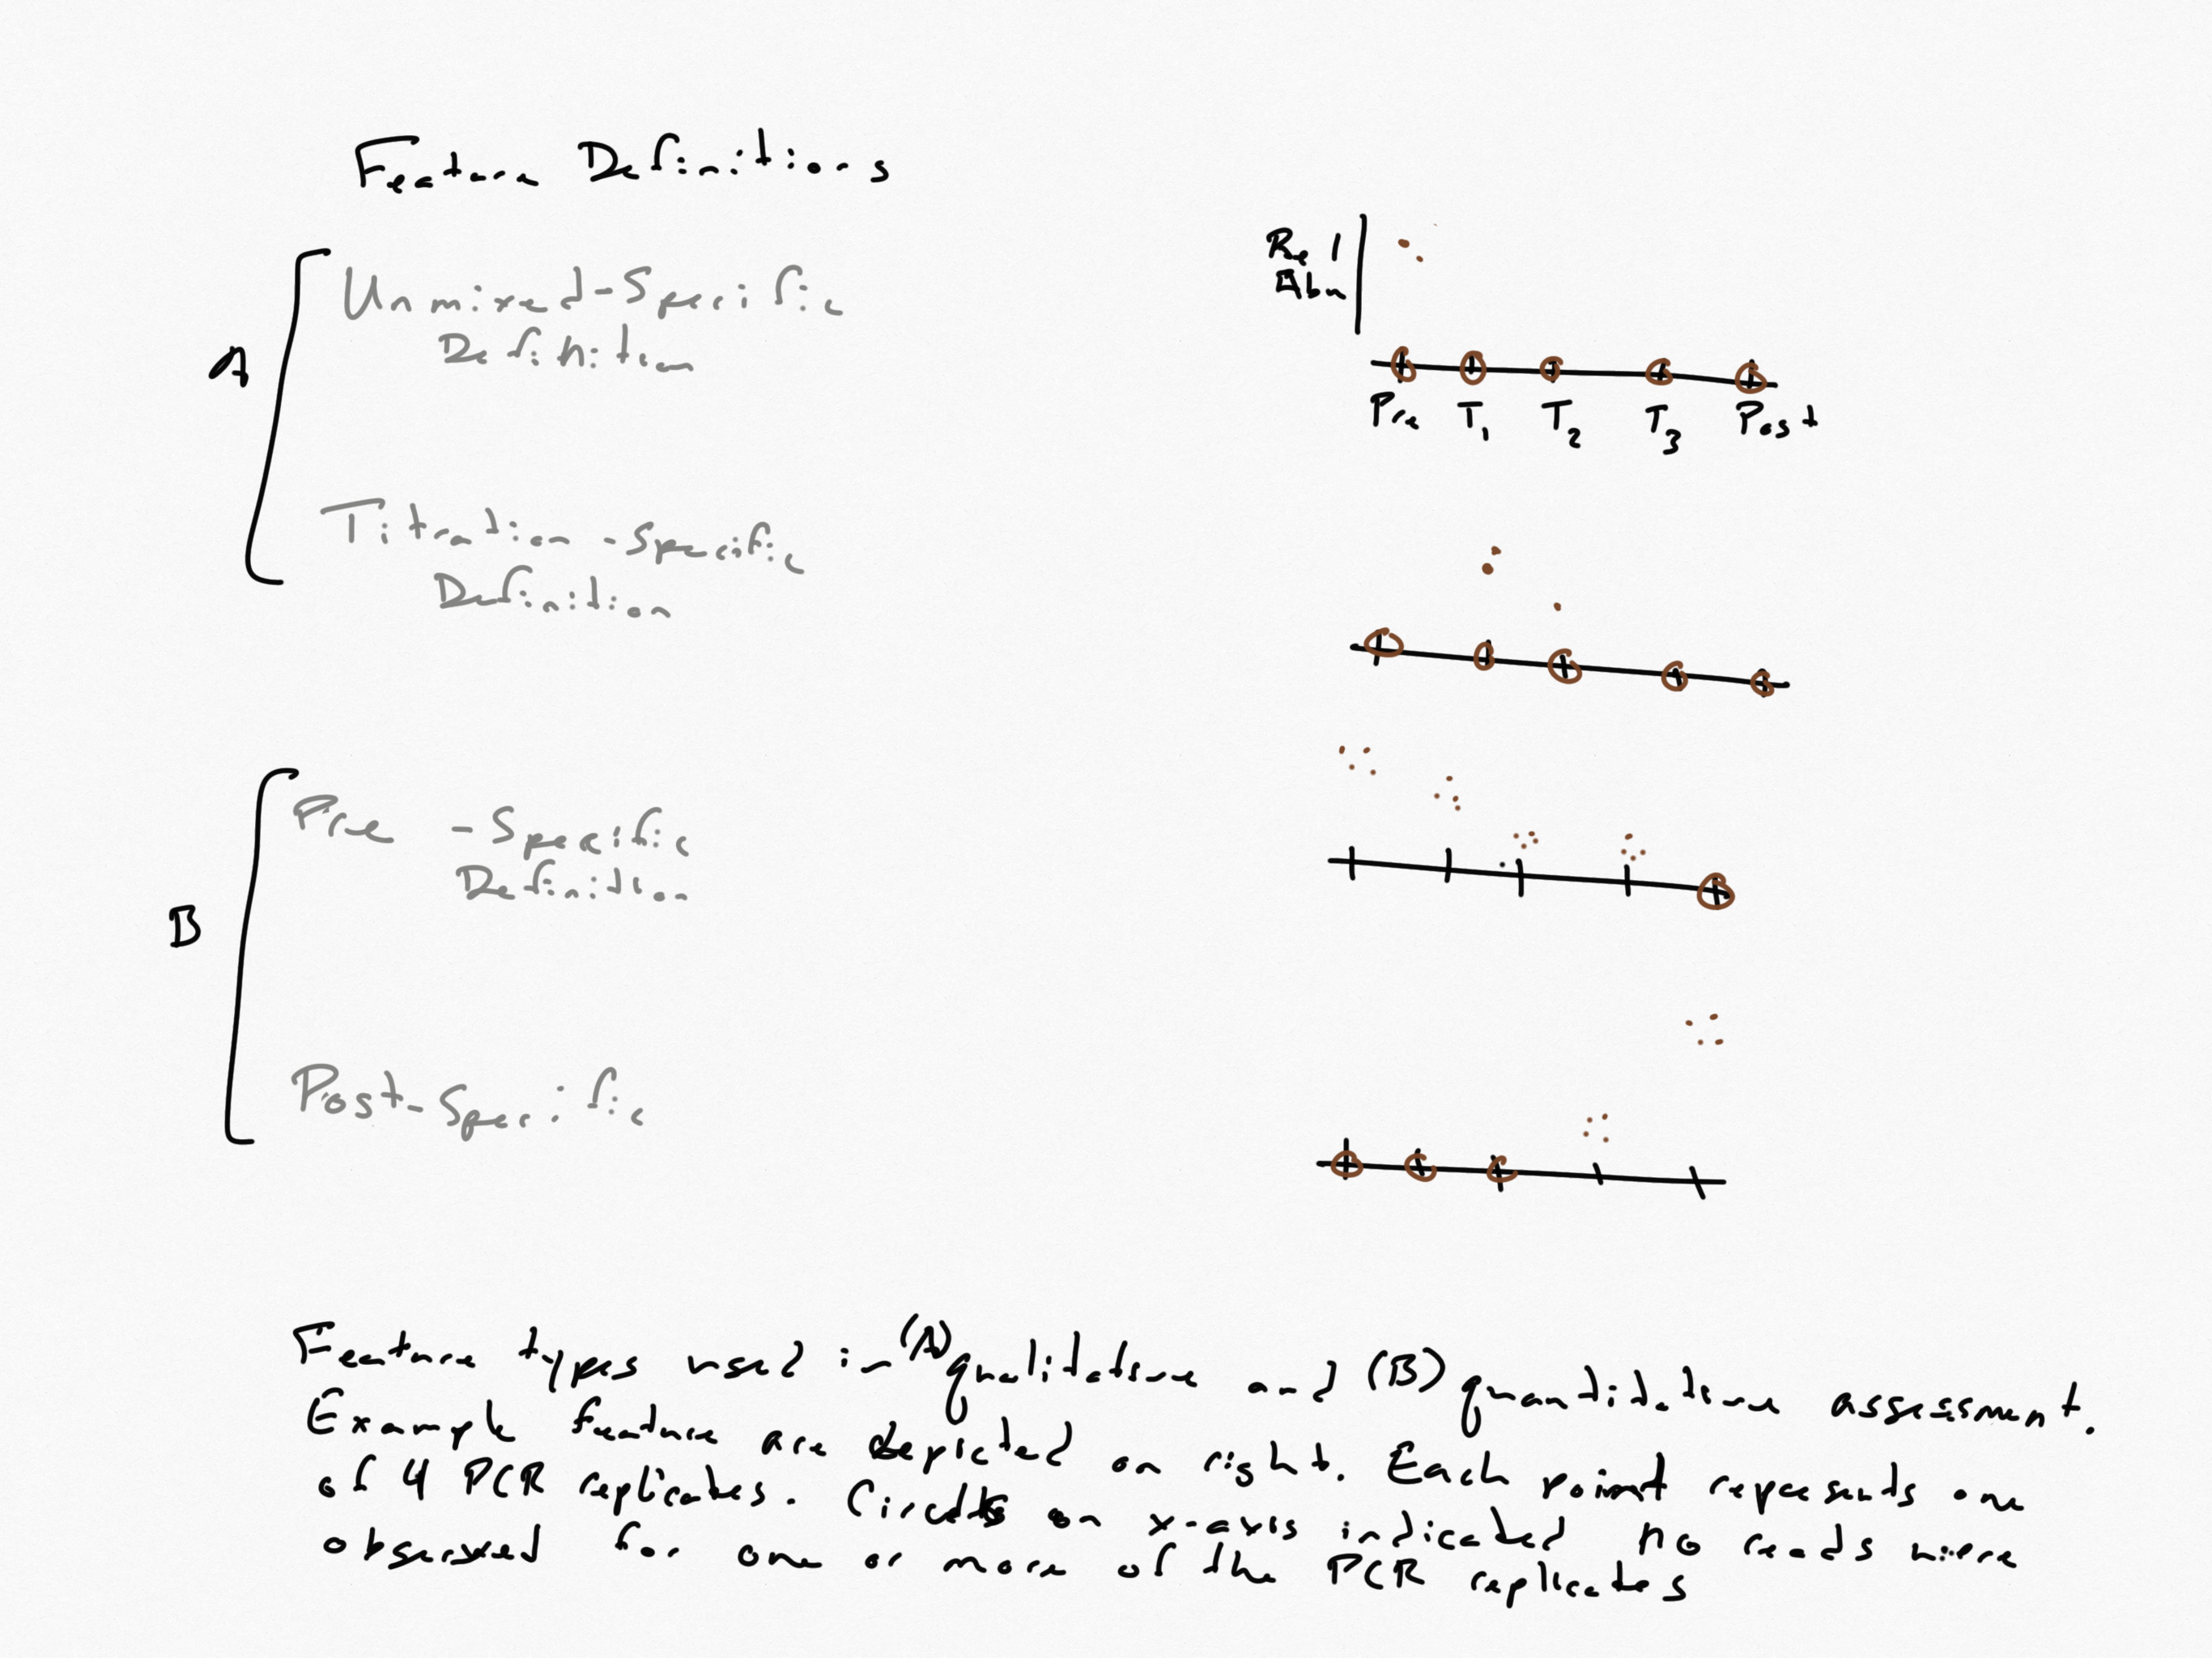 Feature Definitions
A
Unmixed-Specific
Definition
Rel
Abn
Pre T1 T2 T3 Post
Titration-Specific
Definition
B
Pre -Specific
Definition
Post-Specific
Feature types used in (A) qualitative and (B) quantitative assessment.
Example feature are depicted on right. Each point repesents one
of 4 PCR replicates. Circles on x-axis indicated no reads were
observed for one or more of the PCR replicates